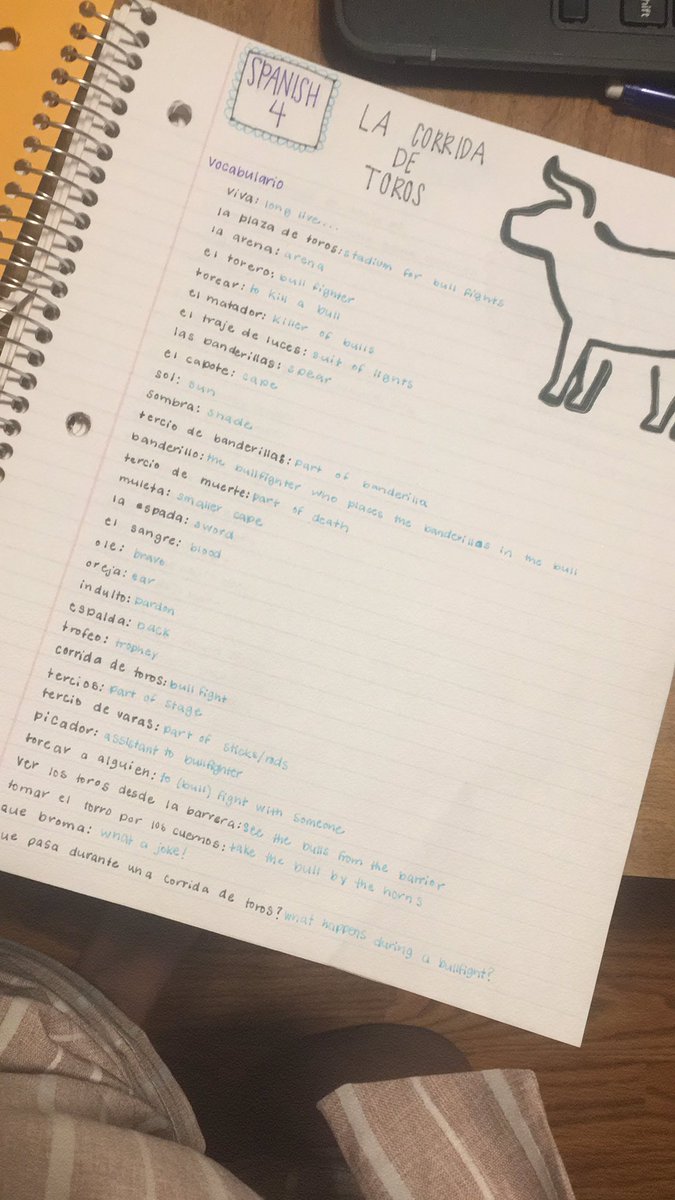 shift
SPANISH
4
LA CORRIDA
DE
TOROS
Vocabulario
viva: long live...
la plaza de toros: stadium for bull fights
la arena: arena
el torero: bull fighter
torear: to kill a bull
el matador: killer of bulls
el traje de luces: suit of lights
las banderillas: spear
el capote: cape
sol: sun
sombra: shade
tercio de banderillas: part of banderilla
banderillo: the bullfighter who places the banderillas in the bull
tercio de muerte: part of death
muleta: smaller cape
la espada: sword
el sangre: blood
ole: bravo
oreja: ear
indulto: pardon
espalda: back
trofeo: trophey
corrida de toros: bull fight
tercios: part of stage
tercio de varas: part of sticks/rods
picador: assistant to bullfighter
torear a alguien: to (bull) fight with someone
ver los toros desde la barrera: see the bulls from the barrior
tomar el torro por los cuernos: take the bull by the horns
que broma: what a joke!
ue pasa durante una corrida de toros? what happens during a bullfight?